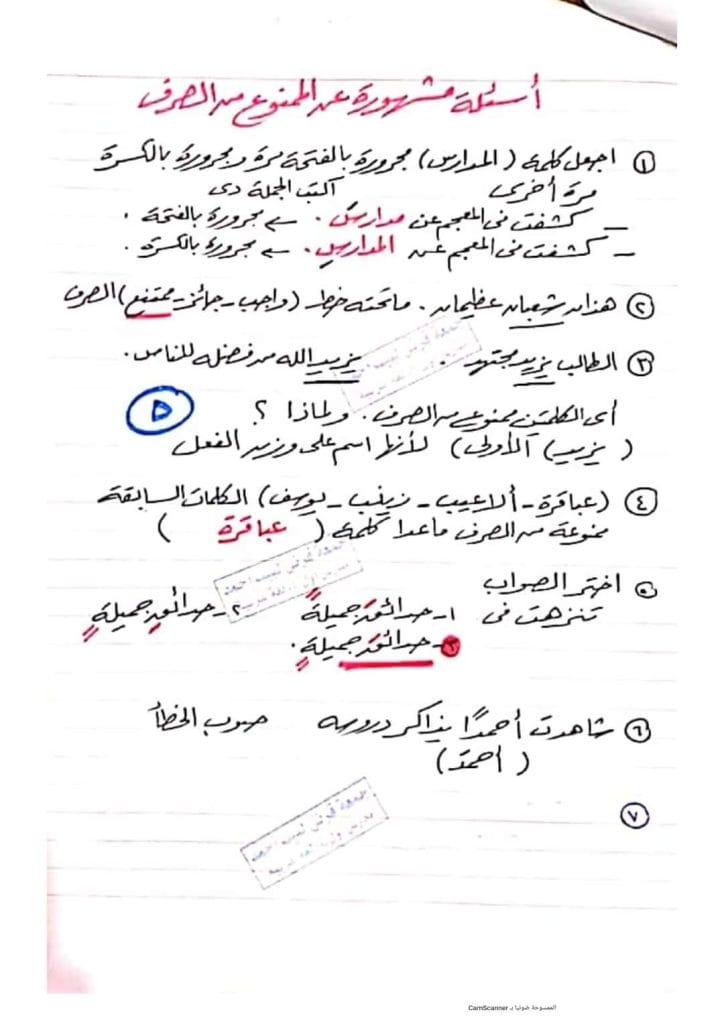 أسئلة مشهورة عن الممنوع من الصرف
١ اجعل كلمة (المدارس) مجرورة بالفتحة مرة ومجرورة بالكسرة
مرة أخرى اكتب الجملة دى
– كشفت فى المعجم عن مدارسَ. ← مجرورة بالفتحة.
– كشفت فى المعجم عن المدارسِ. ← مجرورة بالكسرة.
٢ هذان شعبان عظيمان. ماتحته خط (واجب - جائز - ممتنع) الصرف
٣ الطالب يزيد مجتهد. يزيد الله من فضله للناس.
أى الكلمتين ممنوع من الصرف. ولماذا ؟
٥
(يزيد) الأولى) لأنها اسم على وزن الفعل
٤ (عباقرة - ألاعيب - زينب - يوسف) الكلمات السابقة
ممنوعة من الصرف ماعدا كلمة ( عباقرة )
٥ اختر الصواب
تنزهت فى ١- حدائقَ جميلةً ٢- حدائقٍ جميلةٍ
٣- حدائقَ جميلةٍ.
٦ شاهدت أحمدًا يذاكر دروسه صوب الخطأ
(أحمدَ)
٧
الممسوحة ضوئيا بـ CamScanner